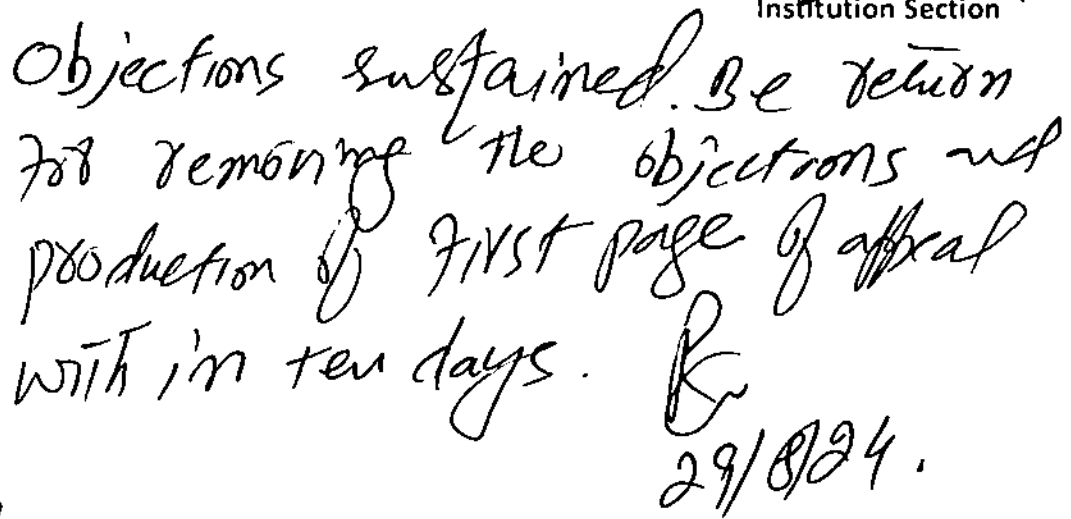 Institution Section
Objections sustained. Be return
for removing the objections and
production of first page of appeal
with in ten days.
29/8/24.